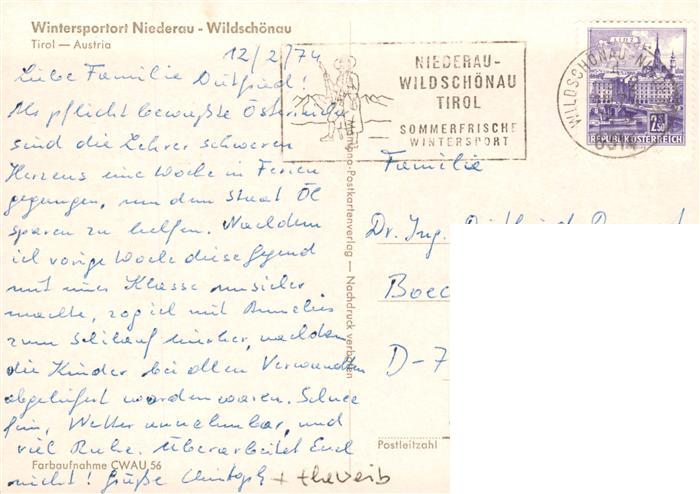 Wintersportort Niederau - Wildschönau
Tirol — Austria
12/2/74
NIEDERAU-
WILDSCHÖNAU
TIROL
SOMMERFRISCHE
WINTERSPORT
LINZ
2.50
REPUBLIK ÖSTERREICH
WILDSCHÖNAU-N
Liebe Familie Dietfried!
Als pflichtbewußte Österreicher
sind die Lehrer schweren
Herzens eine Woche in Ferien
gegangen, um dem Staat Öl
sparen zu helfen. Nachdem
ich vorige Woche diese Gegend
mit einer Klasse unsicher
machte, zog ich mit Annelies
zum Schilauf hierher, nachdem
die Kinder bei allen Verwandten
abgeliefert worden waren. Schnee
fein, Wetter annehmbar, und
viel Ruhe. Überarbeitet Euch
nicht! Grüße Christoph + the weib
Farbaufnahme CWAU 56
Postkartenverlag — Nachdruck verboten
Familie
Dr. Ing.
Boec
D-7
Postleitzahl